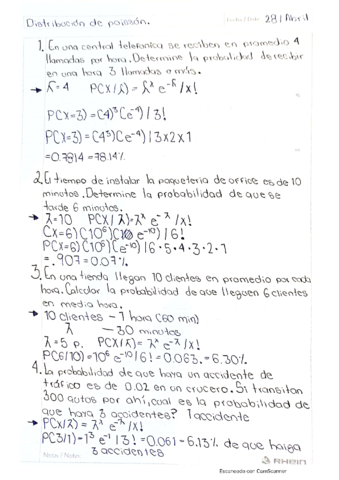 Distribución de poissón. Fecha/Date 28/Abril
1. En una central telefonica se reciben en promedio 4
llamadas por hora. Determine la probabilidad de recibir
en una hora 3 llamadas o más.
→ λ=4 P(X/λ)=λˣ e^-λ/x!
P(X=3)=(4)³(e⁻⁴)/3!
P(X=3)=(4³)(e⁻⁴)/3x2x1
=0.7814=78.14%
2. El tiempo de instalar la paqueteria de office es de 10
minutos. Determine la probabilidad de que se
tarde 6 minutos.
→ λ=10 P(X/λ)=λˣ e^-λ/x!
(X=6)(10⁶)(e⁻¹⁰)/6!
P(X=6)(10⁶)(e⁻¹⁰)/6·5·4·3·2·1
=.907=0.07%
3. En una tienda llegan 10 clientes en promedio por cada
hora. Calcular la probabilidad de que lleguen 6 clientes
en media hora.
→ 10 clientes - 1 hora (60 min)
λ - 30 minutos
λ=5 p. P(X/λ)=λˣ e^-λ/x!
P(6/10)=10⁶ e⁻¹⁰/6!=0.063.=6.30%
4. La probabilidad de que haya un accidente de
tráfico es de 0.02 en un crucero. Si transitan
300 autos por ahí, cual es la probabilidad de
que haya 3 accidentes? 1 accidente
→ P(X/λ)=λˣ e^-λ/x!
P(3/1)=1³ e⁻¹/3!=0.061-6.13% de que haiga
3 accidentes
Notas/Notes
RHEIN
Escaneado con CamScanner